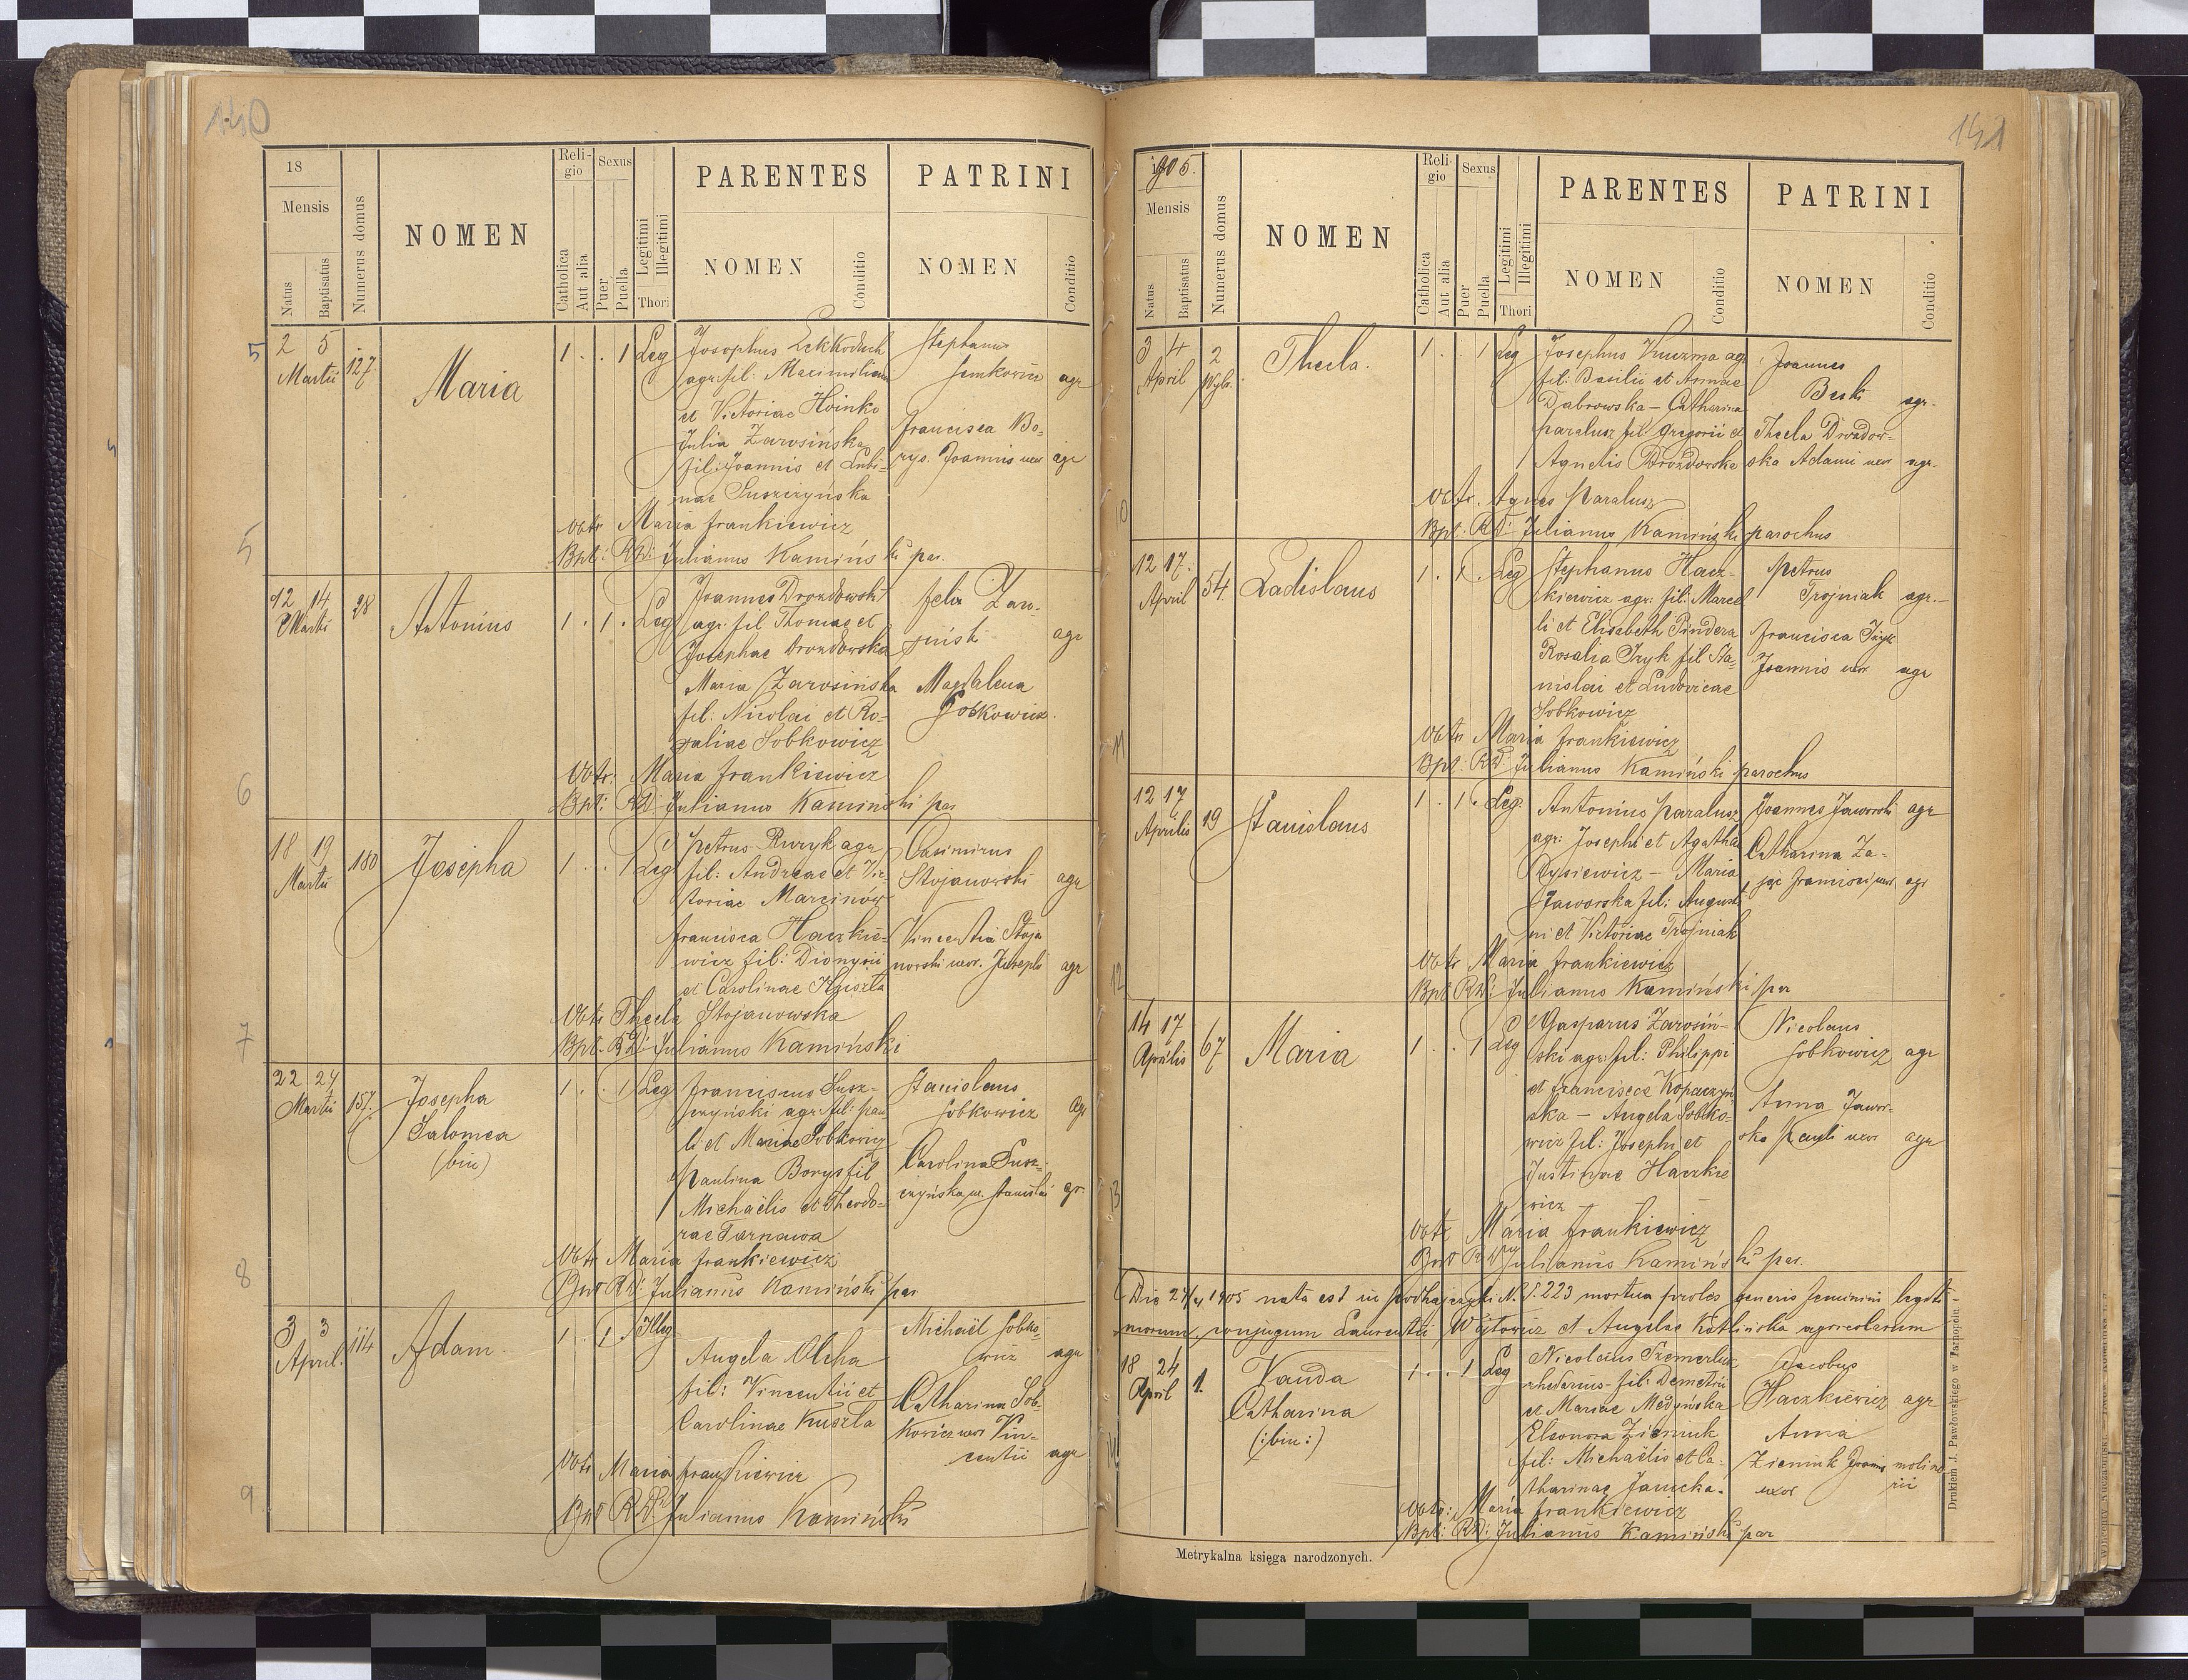 140
18
Mensis
Natus
Baptisatus
Numerus domus
NOMEN
Religio
Catholica
Aut alia
Sexus
Puer
Puella
Legitimi
Illegitimi
Thori
PARENTES
NOMEN
Conditio
PATRINI
NOMEN
Conditio
5
2 5
Martii
127
Maria
1 . . 1 Leg
Josephus
agr. fil: Maximiliani
et Victoriae Hoinko
Julia Zarosińska
fil: Joannis et Lubi-
nae Suszczyńska
Stephanus
Semkowicz agr
Francisca Bo-
rys. Joannis uxor agr
Obtr Maria Frankiewicz
Bpt: RD: Julianus Kamiński par.
6
12 14
Martii
28
Antonius
1 . 1 . Leg
Joannes Drozdowski
agr. fil Thomae et
Josephae Drozdowska
Maria Zarosińska
fil. Nicolai et Ro-
saliae Sobkowicz
Felix
agr
Magdalena
Sobkowicz.
Obtr: Maria Frankiewicz
Bpt: RD: Julianus Kaminski par
7
18 19
Martii
180
Josepha
1 . . 1 Leg
Petrus Ruryk agr
fil: Andreae et Vic-
toriae Marcinów
Francisca Haczkie-
wicz fil: Dionysii
et Carolinae Kuszla
Casimirus
Stojanowski agr
Vincentia Stoja
nowski uxor. Josephi agr
Obtr Thecla Stojanowska
Bpt. RD: Julianus Kamiński
8
22 24
Martii
157.
Josepha
Salomea
(bin)
1 . . 1 Leg
Franciscus Susz-
czyński agr. fil: Pau
li et Mariae Sobkowicz
Paulina Borys fil
Michaëlis et Theodo-
rae Tarnawa
Stanislaus
Sobkowicz agr
Carolina Susz-
czyńska ux. Stanislai agr.
Obtr Maria Frankiewicz
Bpt RD: Julianus Kamiński par
9
3 3
April.
114
Adam.
1 . 1 . Illeg
Angela Olcha
fil: Vincentii et
Carolinae Kuszla
Michaël Sobko-
wicz agr
Catharina Sob-
kowicz uxor Vin-
centii agr
Obtr Maria Frankiewicz
Bpt RD: Julianus Kamiński
141
1905.
Mensis
Natus
Baptisatus
Numerus domus
NOMEN
Religio
Catholica
Aut alia
Sexus
Puer
Puella
Legitimi
Illegitimi
Thori
PARENTES
NOMEN
Conditio
PATRINI
NOMEN
Conditio
10
3 4
April
2
Thecla.
1 . . 1 Leg
Josephus Kuczma agr
fil: Basilii et Annae
Dabrowska – Catharina
Paralusz fil: Gregorii et
Agnetis Drozdowska
Joannes
Beski agr.
Thecla Drozdow-
ska Adami uxor agr.
Obtr. Agnes Paralusz
Bpt. RD: Julianus Kamiński parochus
11
12 17.
April
54
Ladislaus
1 . 1 . Leg
Stephanus Hacz-
kiewicz agr. fil: Marcel
li et Elisabeth Pindera
Rosalia Iryk fil Sta-
nislai et Ludovicae
Sobkowicz
Petrus
Trojniak agr.-
Francisca Iryk
Joannis uxor agr
Obtr Maria Frankiewicz
Bpt: RD: Julianus Kamiński parochus
12
12 17
Aprilis
19
Stanislaus
1 . 1 . Leg.
Antonius Paralusz
agr: Josephi et Agathae
Rysiewicz – Maria
Jaworska fil: Augusti
ni et Victoriae Trojniak
Joannes Jaworski agr
Catharina Za-
jac Francisci uxor agr
Obtr Maria Frankiewicz
Bpt RD: Julianus Kamiński par
13
14 17
Aprilis
67
Maria
1 . . 1 Leg
Gasparus Zarosiń-
ski agr: fil: Philippi
et Franciscae Kopaczyń
ska – Angela Sobko-
wicz fil: Josephi et
Justinae Haczkie
wicz
Nicolaus
Sobkowicz agr
Anna Jawor-
ska Pauli uxor agr
Obtr Maria Frankiewicz
Bpt RD: Julianus Kamiński par.
Die 24/4 1905 nata est in Podhajczyki N. 223 mortua proles generis feminini legiti-
morum conjugum Laurentii Wójtowicz et Angelae Kotlińska agricolarum
14
18 24
April
1.
Vanda
Catharina
(:bin:)
1 . . 1 Leg
Nicolaus Szemerluk
rhedarius fil: Demetrii
et Mariae Medyńska
Eleonora Zieniuk
fil: Michaëlis et Ca-
tharinae Janicka.
Jacobus
Haczkiewicz agr
Anna
Zieniuk Joannis molina
uxor rii
Obtr: Maria Frankiewicz
Bpt: RD: Julianus Kamiński par
Metrykalna księga narodzonych.
Drukiem J. Pawłowskiego w Tarnopolu